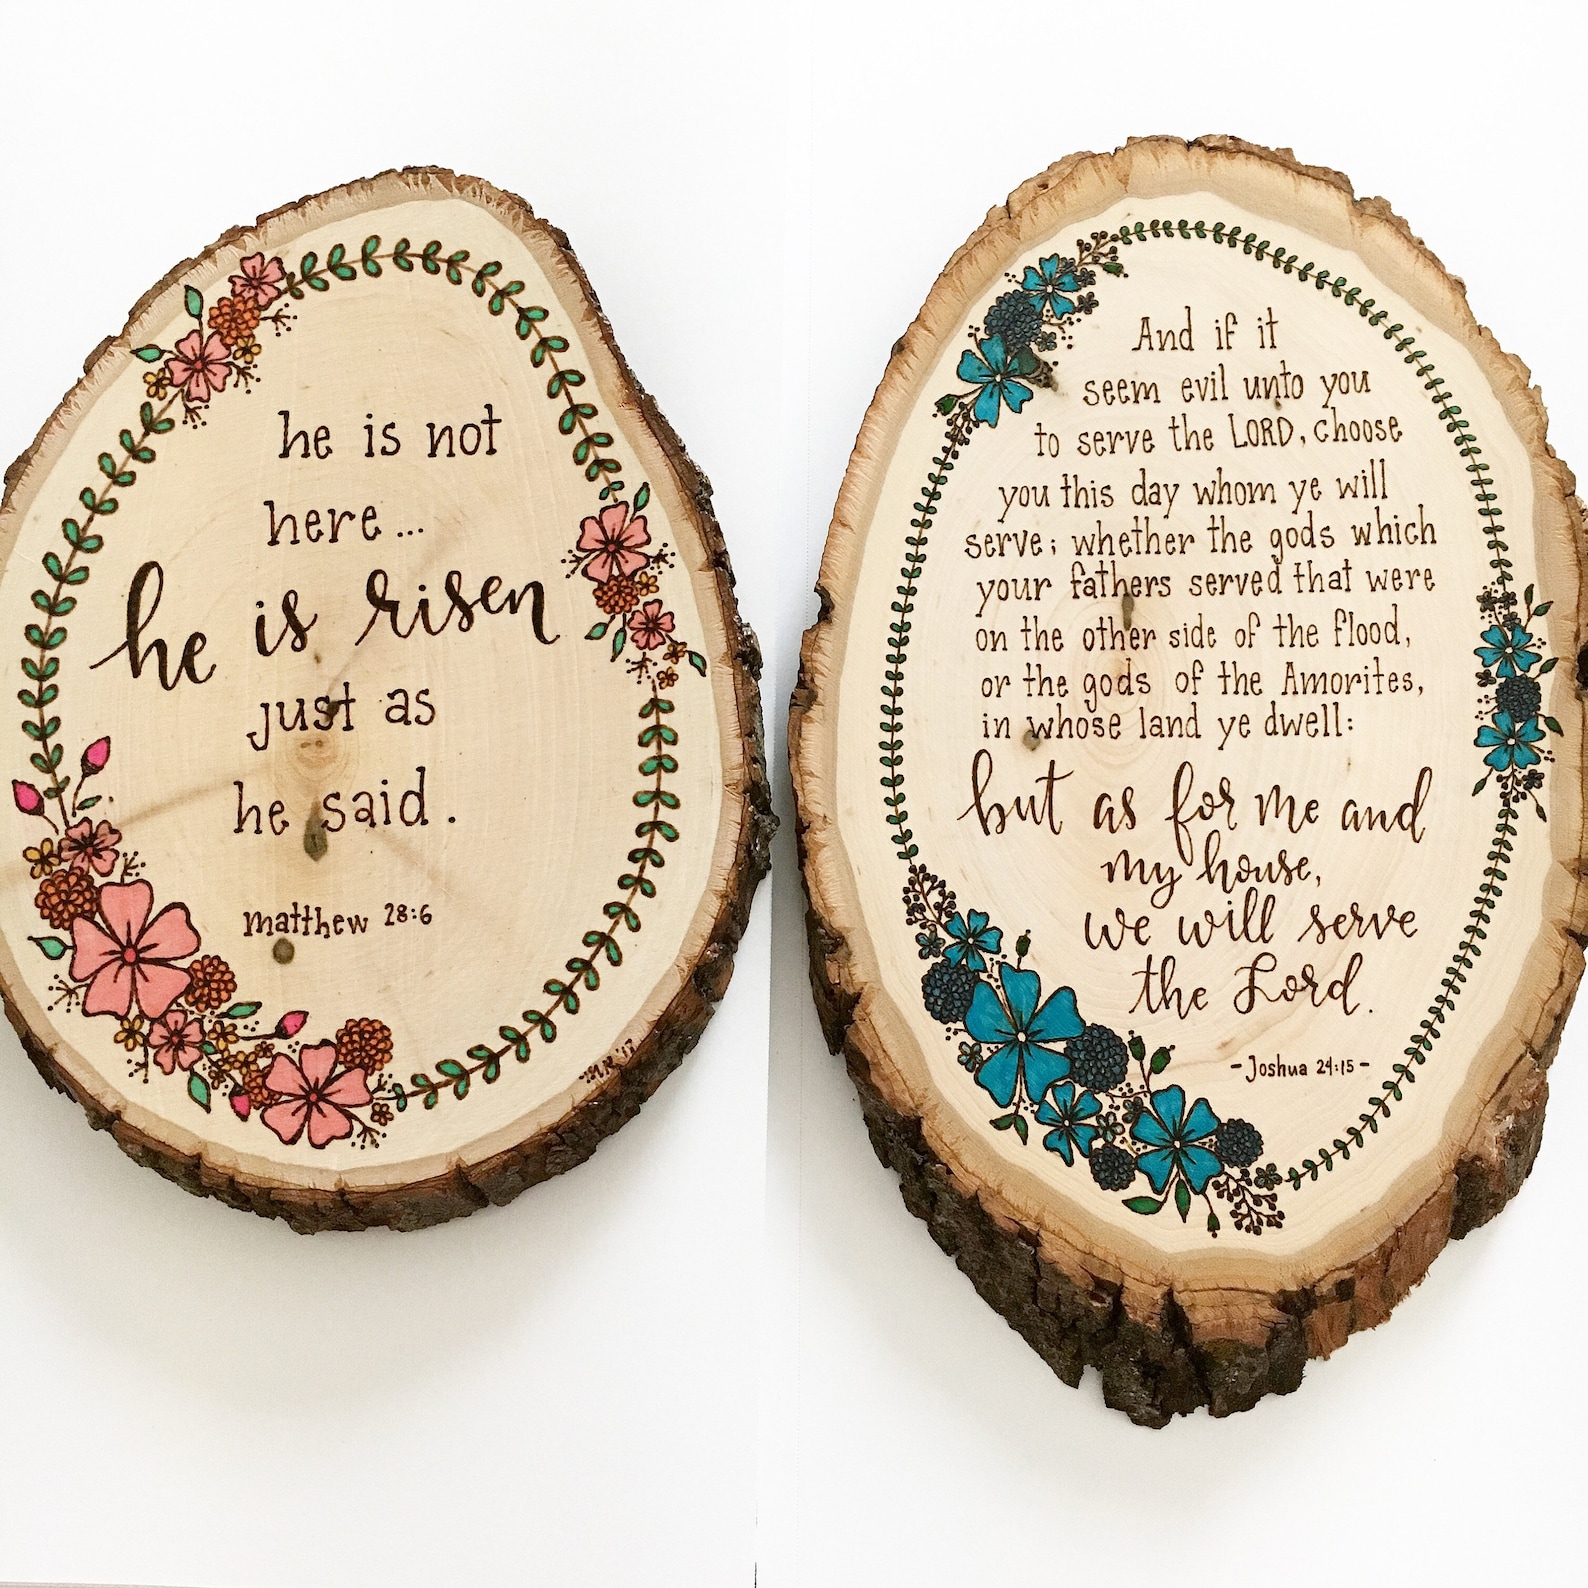 he is not
here...
he is risen
just as
he said.
matthew 28:6
And if it
seem evil unto you
to serve the LORD, choose
you this day whom ye will
serve; whether the gods which
your fathers served that were
on the other side of the flood,
or the gods of the Amorites,
in whose land ye dwell:
but as for me and
my house,
we will serve
the Lord.
-Joshua 24:15-